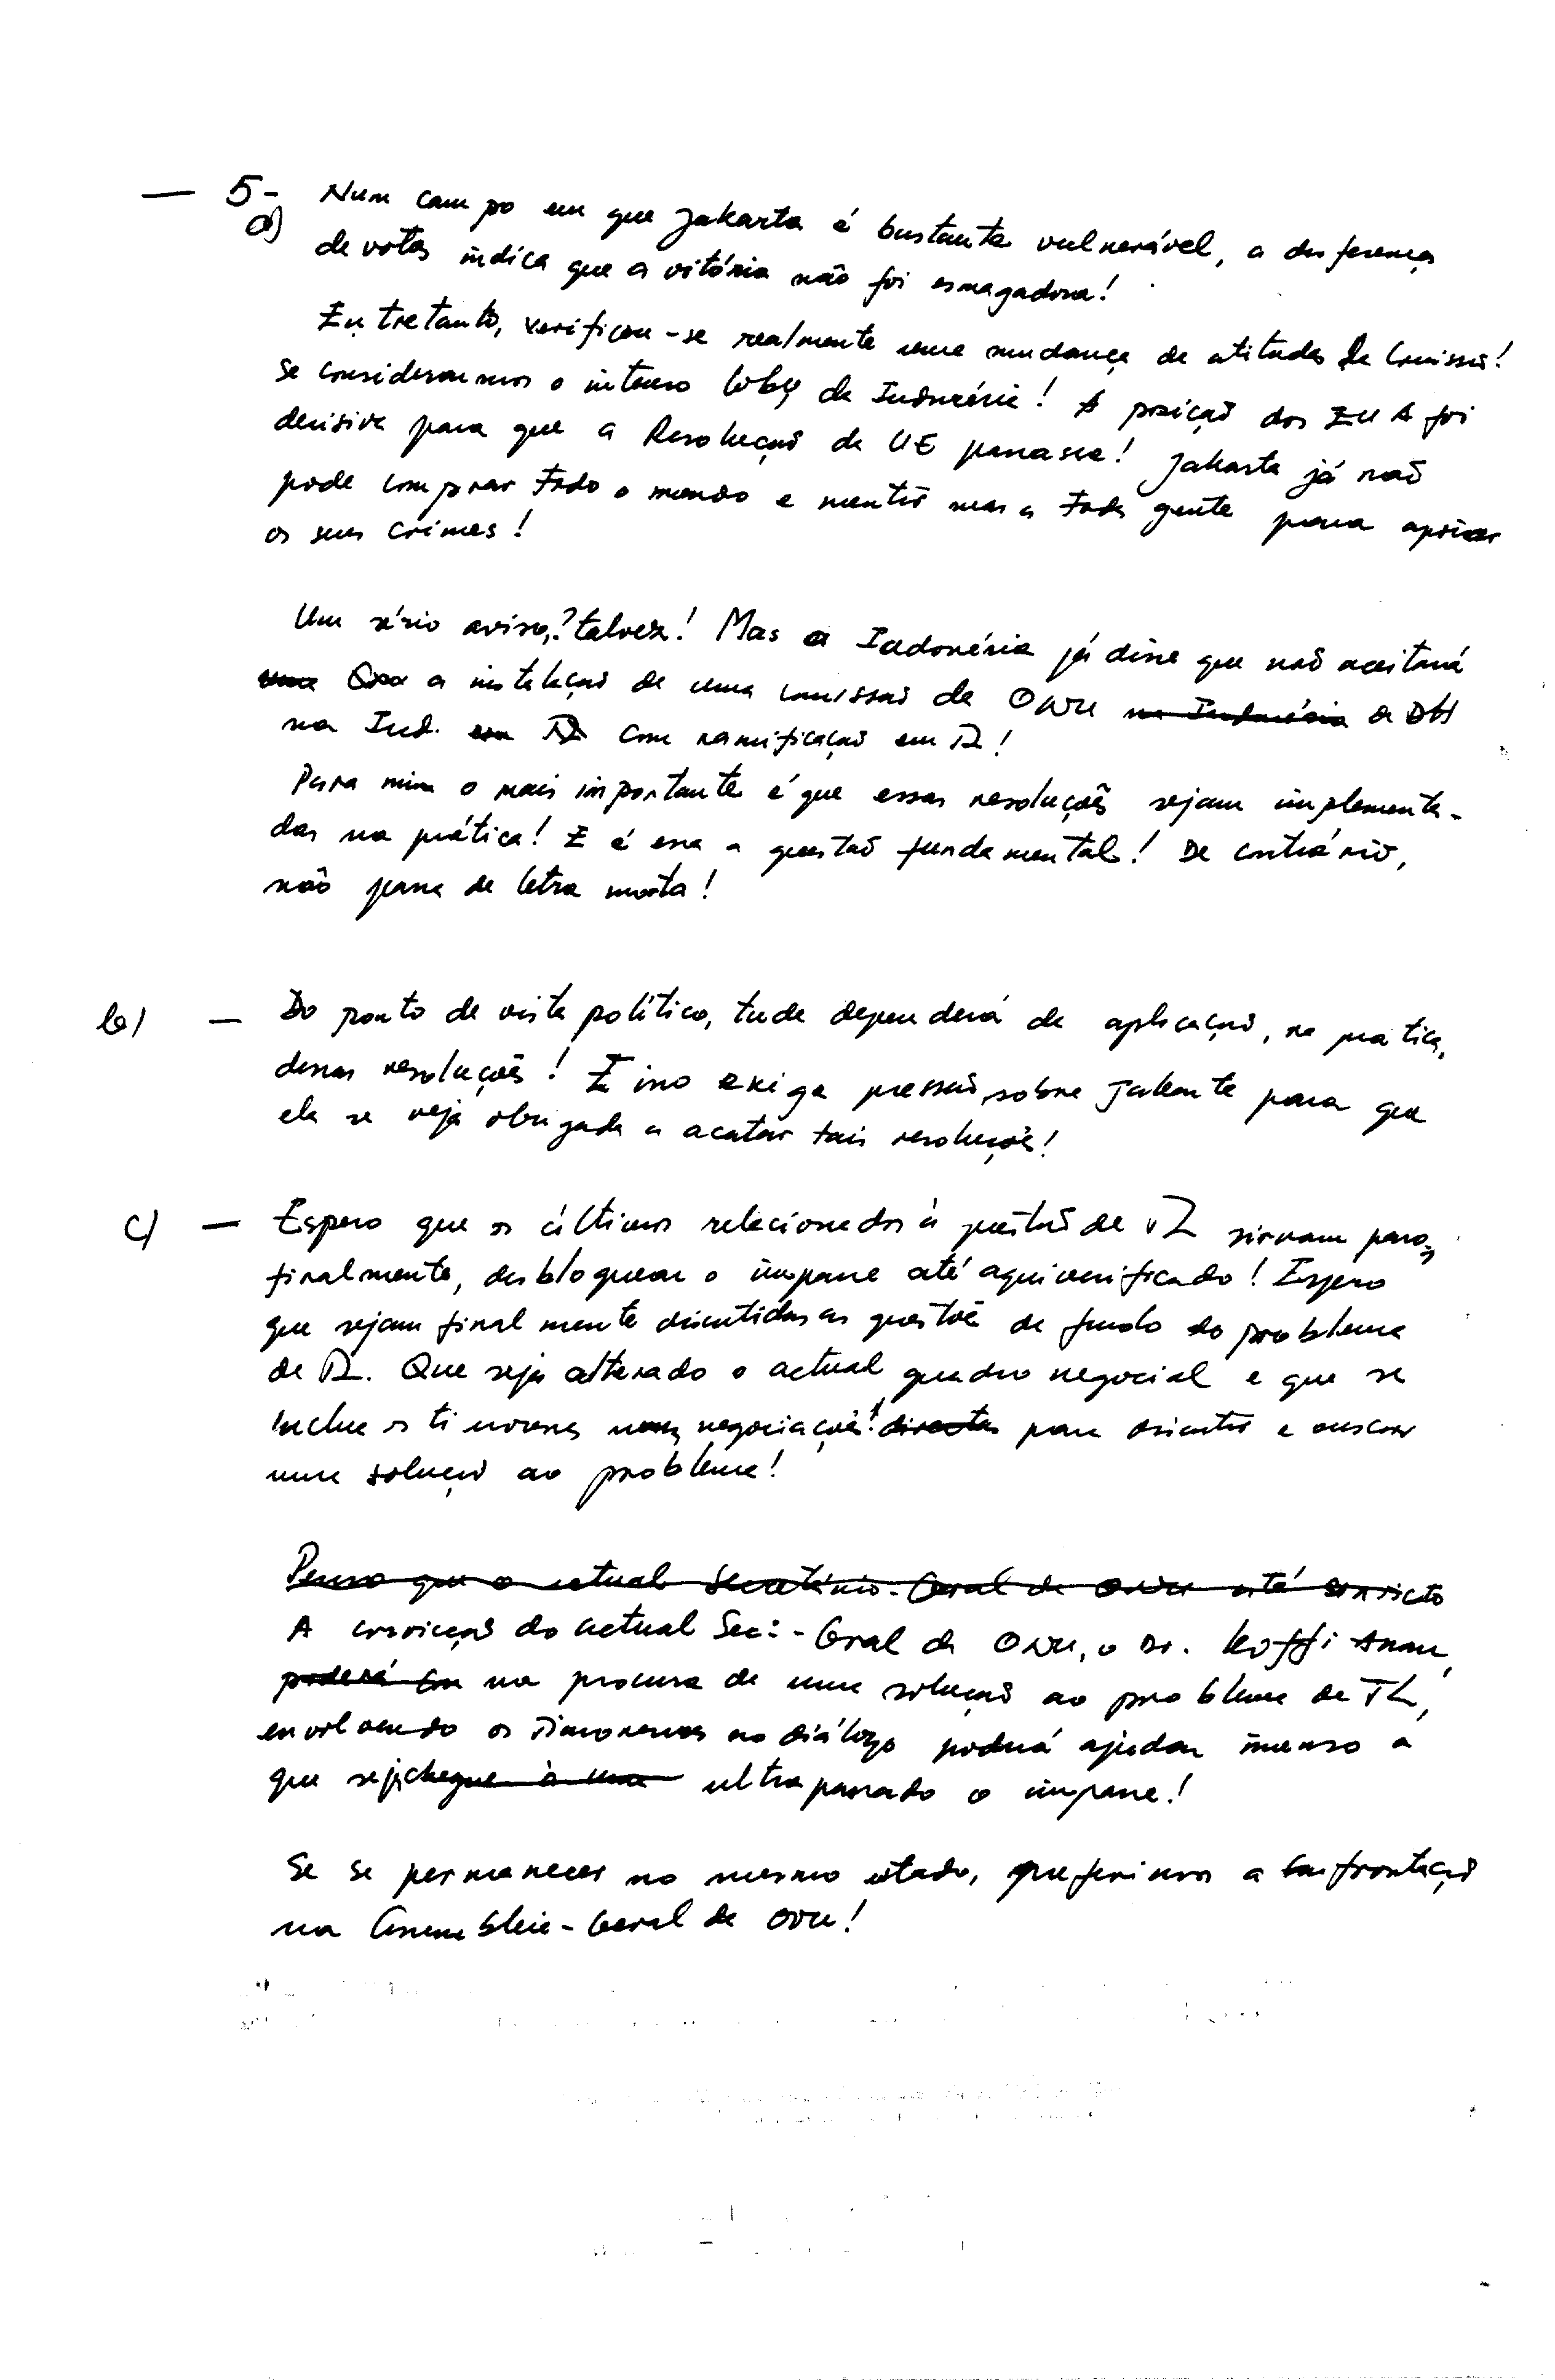 — 5- Num campo em que Jakarta é bastante vulnerável, a diferença
a) de votos indica que a vitória não foi esmagadora!
Entretanto, verificou-se realmente uma mudança de atitudes da Comissão!
Se considerarmos o intenso loby da Indonésia! A posição dos EUA foi
decisiva para que a Resolução da UE passasse! Jakarta já não
pode comprar todo o mundo e mentir mas a toda gente para apoiar
os seus crimes!
Um sério aviso,? talvez! Mas a Indonésia já disse que não aceitará
uma a instalação de uma comissão da ONU na Indonésia de DH
na Ind. em TL com ramificação em TL!
Para mim o mais importante é que essas resoluções sejam implementa-
das na prática! E é essa a questão fundamental! De contrário,
não passa de letra morta!
b) — Do ponto de vista político, tudo dependerá da aplicação, na prática,
dessas resoluções! E isso exige pressão sobre Jakarta para que
ela se veja obrigada a acatar tais resoluções!
c) — Espero que os últimos relacionados à questão de TL sirvam para,
finalmente, desbloquear o impasse até aqui verificado! Espero
que sejam finalmente discutidas as questões de fundo do problema
de TL. Que seja alterado o actual quadro negocial e que se
inclua os timorenses nas negociações! directas para discutir e buscar
uma solução ao problema!
Penso que o actual Secretário-Geral da ONU está convicto
A convicção do actual Sec:-Geral da ONU, o Dr. Koffi Anan,
poderá com na procura de uma solução ao problema de TL,
envolvendo os Timorenses no diálogo poderá ajudar imenso a
que seja chegue à uma ultrapassado o impasse!
Se se permanecer no mesmo estado, preferimos a confrontação
na Assembleia-Geral da ONU!